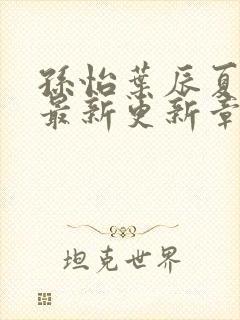 孫怡葉辰夏
最新更新章
坦克世界